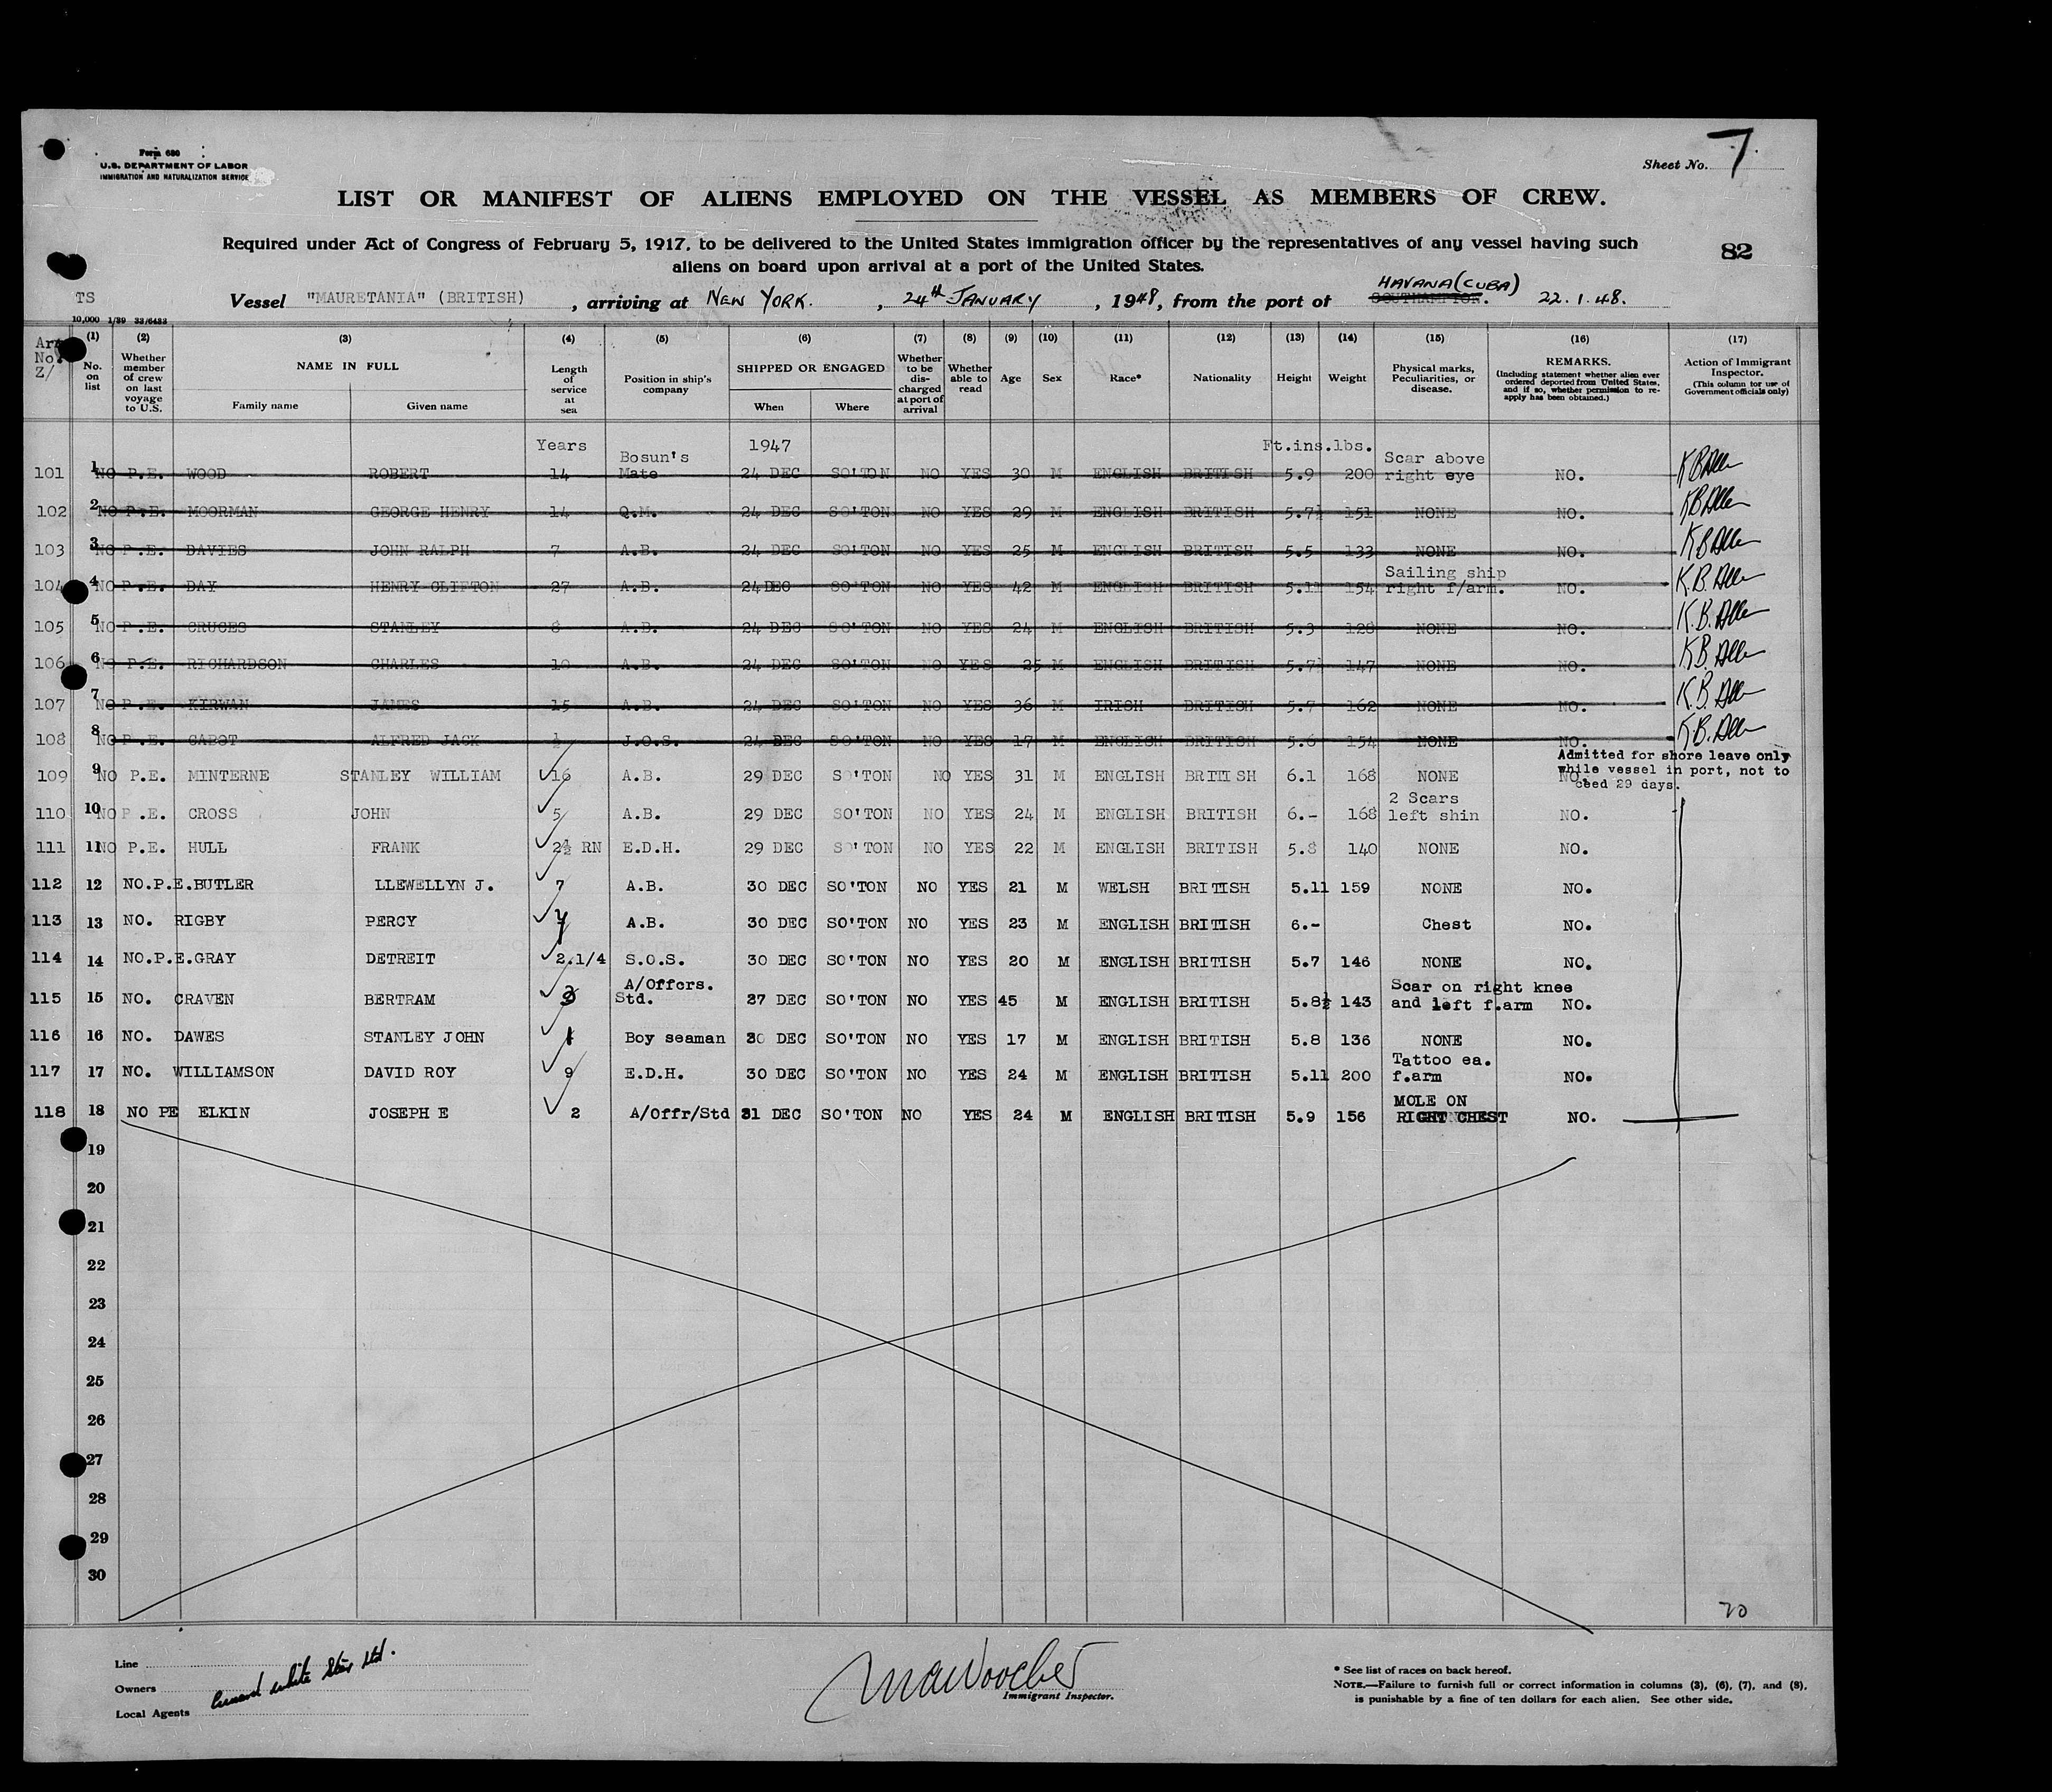 Form 680
U.S. DEPARTMENT OF LABOR
IMMIGRATION AND NATURALIZATION SERVICE
Sheet No. 7
LIST OR MANIFEST OF ALIENS EMPLOYED ON THE VESSEL AS MEMBERS OF CREW.
Required under Act of Congress of February 5, 1917, to be delivered to the United States immigration officer by the representatives of any vessel having such
aliens on board upon arrival at a port of the United States.
82
TS
Vessel "MAURETANIA" (BRITISH), arriving at NEW YORK., 24th JANUARY, 1948, from the port of SOUTHAMPTON. HAVANA (CUBA) 22.1.48.
10,000 1/39 33/6433
Art No. Z/
(1) No. on list
(2) Whether member of crew on last voyage to U.S.
(3) NAME IN FULL Family name Given name
(4) Length of service at sea
(5) Position in ship's company
(6) SHIPPED OR ENGAGED When Where
(7) Whether to be discharged at port of arrival
(8) Whether able to read
(9) Age
(10) Sex
(11) Race*
(12) Nationality
(13) Height
(14) Weight
(15) Physical marks, Peculiarities, or disease.
(16) REMARKS. (Including statement whether alien ever ordered deported from United States, and if so, whether permission to re-apply has been obtained.)
(17) Action of Immigrant Inspector. (This column for use of Government officials only)
Years 1947 Ft.ins.lbs.
101 1 NO P.E. WOOD ROBERT 14 Bosun's Mate 24 DEC SO'TON NO YES 30 M ENGLISH BRITISH 5.9 200 Scar above right eye NO. K B Allen
102 2 NO P.E. MOORMAN GEORGE HENRY 14 Q.M. 24 DEC SO'TON NO YES 29 M ENGLISH BRITISH 5.7½ 151 NONE NO. K B Allen
103 3 NO P.E. DAVIES JOHN RALPH 7 A.B. 24 DEC SO'TON NO YES 25 M ENGLISH BRITISH 5.5 133 NONE NO. K B Allen
104 4 NO P.E. DAY HENRY CLIFTON 27 A.B. 24 DEC SO'TON NO YES 42 M ENGLISH BRITISH 5.11 154 Sailing ship right f/arm. NO. K.B. Allen
105 5 NO P.E. CRUCES STANLEY 8 A.B. 24 DEC SO'TON NO YES 24 M ENGLISH BRITISH 5.3 128 NONE NO. K.B. Allen
106 6 NO P.E. RICHARDSON CHARLES 10 A.B. 24 DEC SO'TON NO YES 25 M ENGLISH BRITISH 5.7½ 147 NONE NO. K.B. Allen
107 7 NO P.E. KIRWAN JAMES 15 A.B. 24 DEC SO'TON NO YES 36 M IRISH BRITISH 5.7 162 NONE NO. K.B. Allen
108 8 NO P.E. CABOT ALFRED JACK ½ J.O.S. 24 DEC SO'TON NO YES 17 M ENGLISH BRITISH 5.6 154 NONE NO. K.B. Allen
Admitted for shore leave only
while vessel in port, not to
ceed 29 days.
109 9 NO P.E. MINTERNE STANLEY WILLIAM 16 A.B. 29 DEC SO'TON NO YES 31 M ENGLISH BRITISH 6.1 168 NONE NO.
110 10 NO P.E. CROSS JOHN 5 A.B. 29 DEC SO'TON NO YES 24 M ENGLISH BRITISH 6.- 168 2 Scars left shin NO.
111 11 NO P.E. HULL FRANK 2½ RN E.D.H. 29 DEC SO'TON NO YES 22 M ENGLISH BRITISH 5.8 140 NONE NO.
112 12 NO.P.E. BUTLER LLEWELLYN J. 7 A.B. 30 DEC SO'TON NO YES 21 M WELSH BRITISH 5.11 159 NONE NO.
113 13 NO. RIGBY PERCY 7 A.B. 30 DEC SO'TON NO YES 23 M ENGLISH BRITISH 6.- Chest NO.
114 14 NO.P.E. GRAY DETREIT 2.1/4 S.O.S. 30 DEC SO'TON NO YES 20 M ENGLISH BRITISH 5.7 146 NONE NO.
115 15 NO. CRAVEN BERTRAM A/Offcrs. Std. 27 DEC SO'TON NO YES 45 M ENGLISH BRITISH 5.8½ 143 Scar on right knee and left f.arm NO.
116 16 NO. DAWES STANLEY JOHN 1 Boy seaman 30 DEC SO'TON NO YES 17 M ENGLISH BRITISH 5.8 136 NONE NO.
117 17 NO. WILLIAMSON DAVID ROY 9 E.D.H. 30 DEC SO'TON NO YES 24 M ENGLISH BRITISH 5.11 200 Tattoo ea. f.arm NO.
118 18 NO PE ELKIN JOSEPH E 2 A/Offr/Std 31 DEC SO'TON NO YES 24 M ENGLISH BRITISH 5.9 156 MOLE ON RIGHT CHEST NO.
19
20
21
22
23
24
25
26
27
28
29
30
20
Line
Owners Cunard White Star Ltd.
Local Agents
Immigrant Inspector.
* See list of races on back hereof.
NOTE.—Failure to furnish full or correct information in columns (3), (6), (7), and (8),
is punishable by a fine of ten dollars for each alien. See other side.